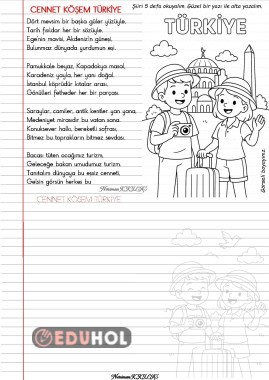 CENNET KÖŞEM TÜRKİYE
Şiiri 5 defa okuyalım. Güzel bir yazı ile alta yazalım.
TÜRKİYE
Dört mevsim bir başka güler yüzüyle,
Tarih fısıldar her bir sözüyle.
Ege'nin mavisi, Akdeniz'in güneşi,
Bulunmaz dünyada yurdumun eşi.
Pamukkale beyaz, Kapadokya masal,
Karadeniz yayla, her yanı doğal.
İstanbul köprüdür kıtalar arası,
Gönülleri fetheder her bir parçası.
Saraylar, camiler, antik kentler yan yana,
Medeniyet mirasıdır bu vatan sana.
Konuksever halkı, bereketli sofrası,
Bitmez bu toprakların bitmez sevdası.
Bacası tüten ocağımız turizm,
Geleceğe bakan umudumuz turizm.
Tanıtalım dünyaya bu eşsiz cenneti,
Gelsin görsün herkes bu
Görseli boyayınız.
CENNET KÖŞEM TÜRKİYE
EDUHOL